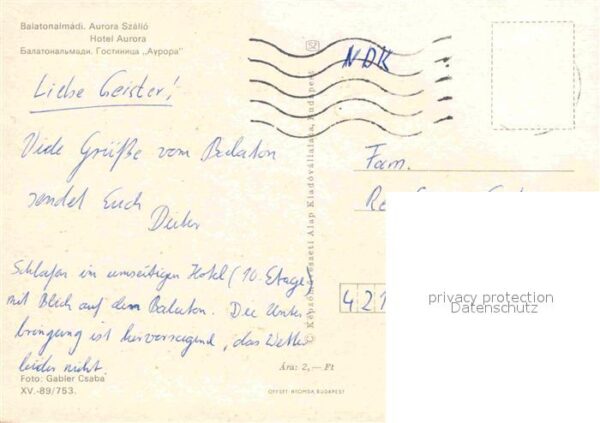 Balatonalmádi. Aurora Szálló
Hotel Aurora
Балатональмади. Гостиница „Аурора"
NDK
Liebe Geister!
Viele Grüße vom Balaton
sendet Euch
Dieter
Schlafen im umseitigen Hotel (10. Etage)
mit Blick auf den Balaton. Die Unter-
bringung ist hervorragend, das Wetter
leider nicht.
Foto: Gabler Csaba
XV.-89/753.
© Képzőművészeti Alap Kiadóvállalata, Budapest
Fam.
421
privacy protection
Datenschutz
Ára: 2,— Ft
OFFSET-NYOMDA, BUDAPEST